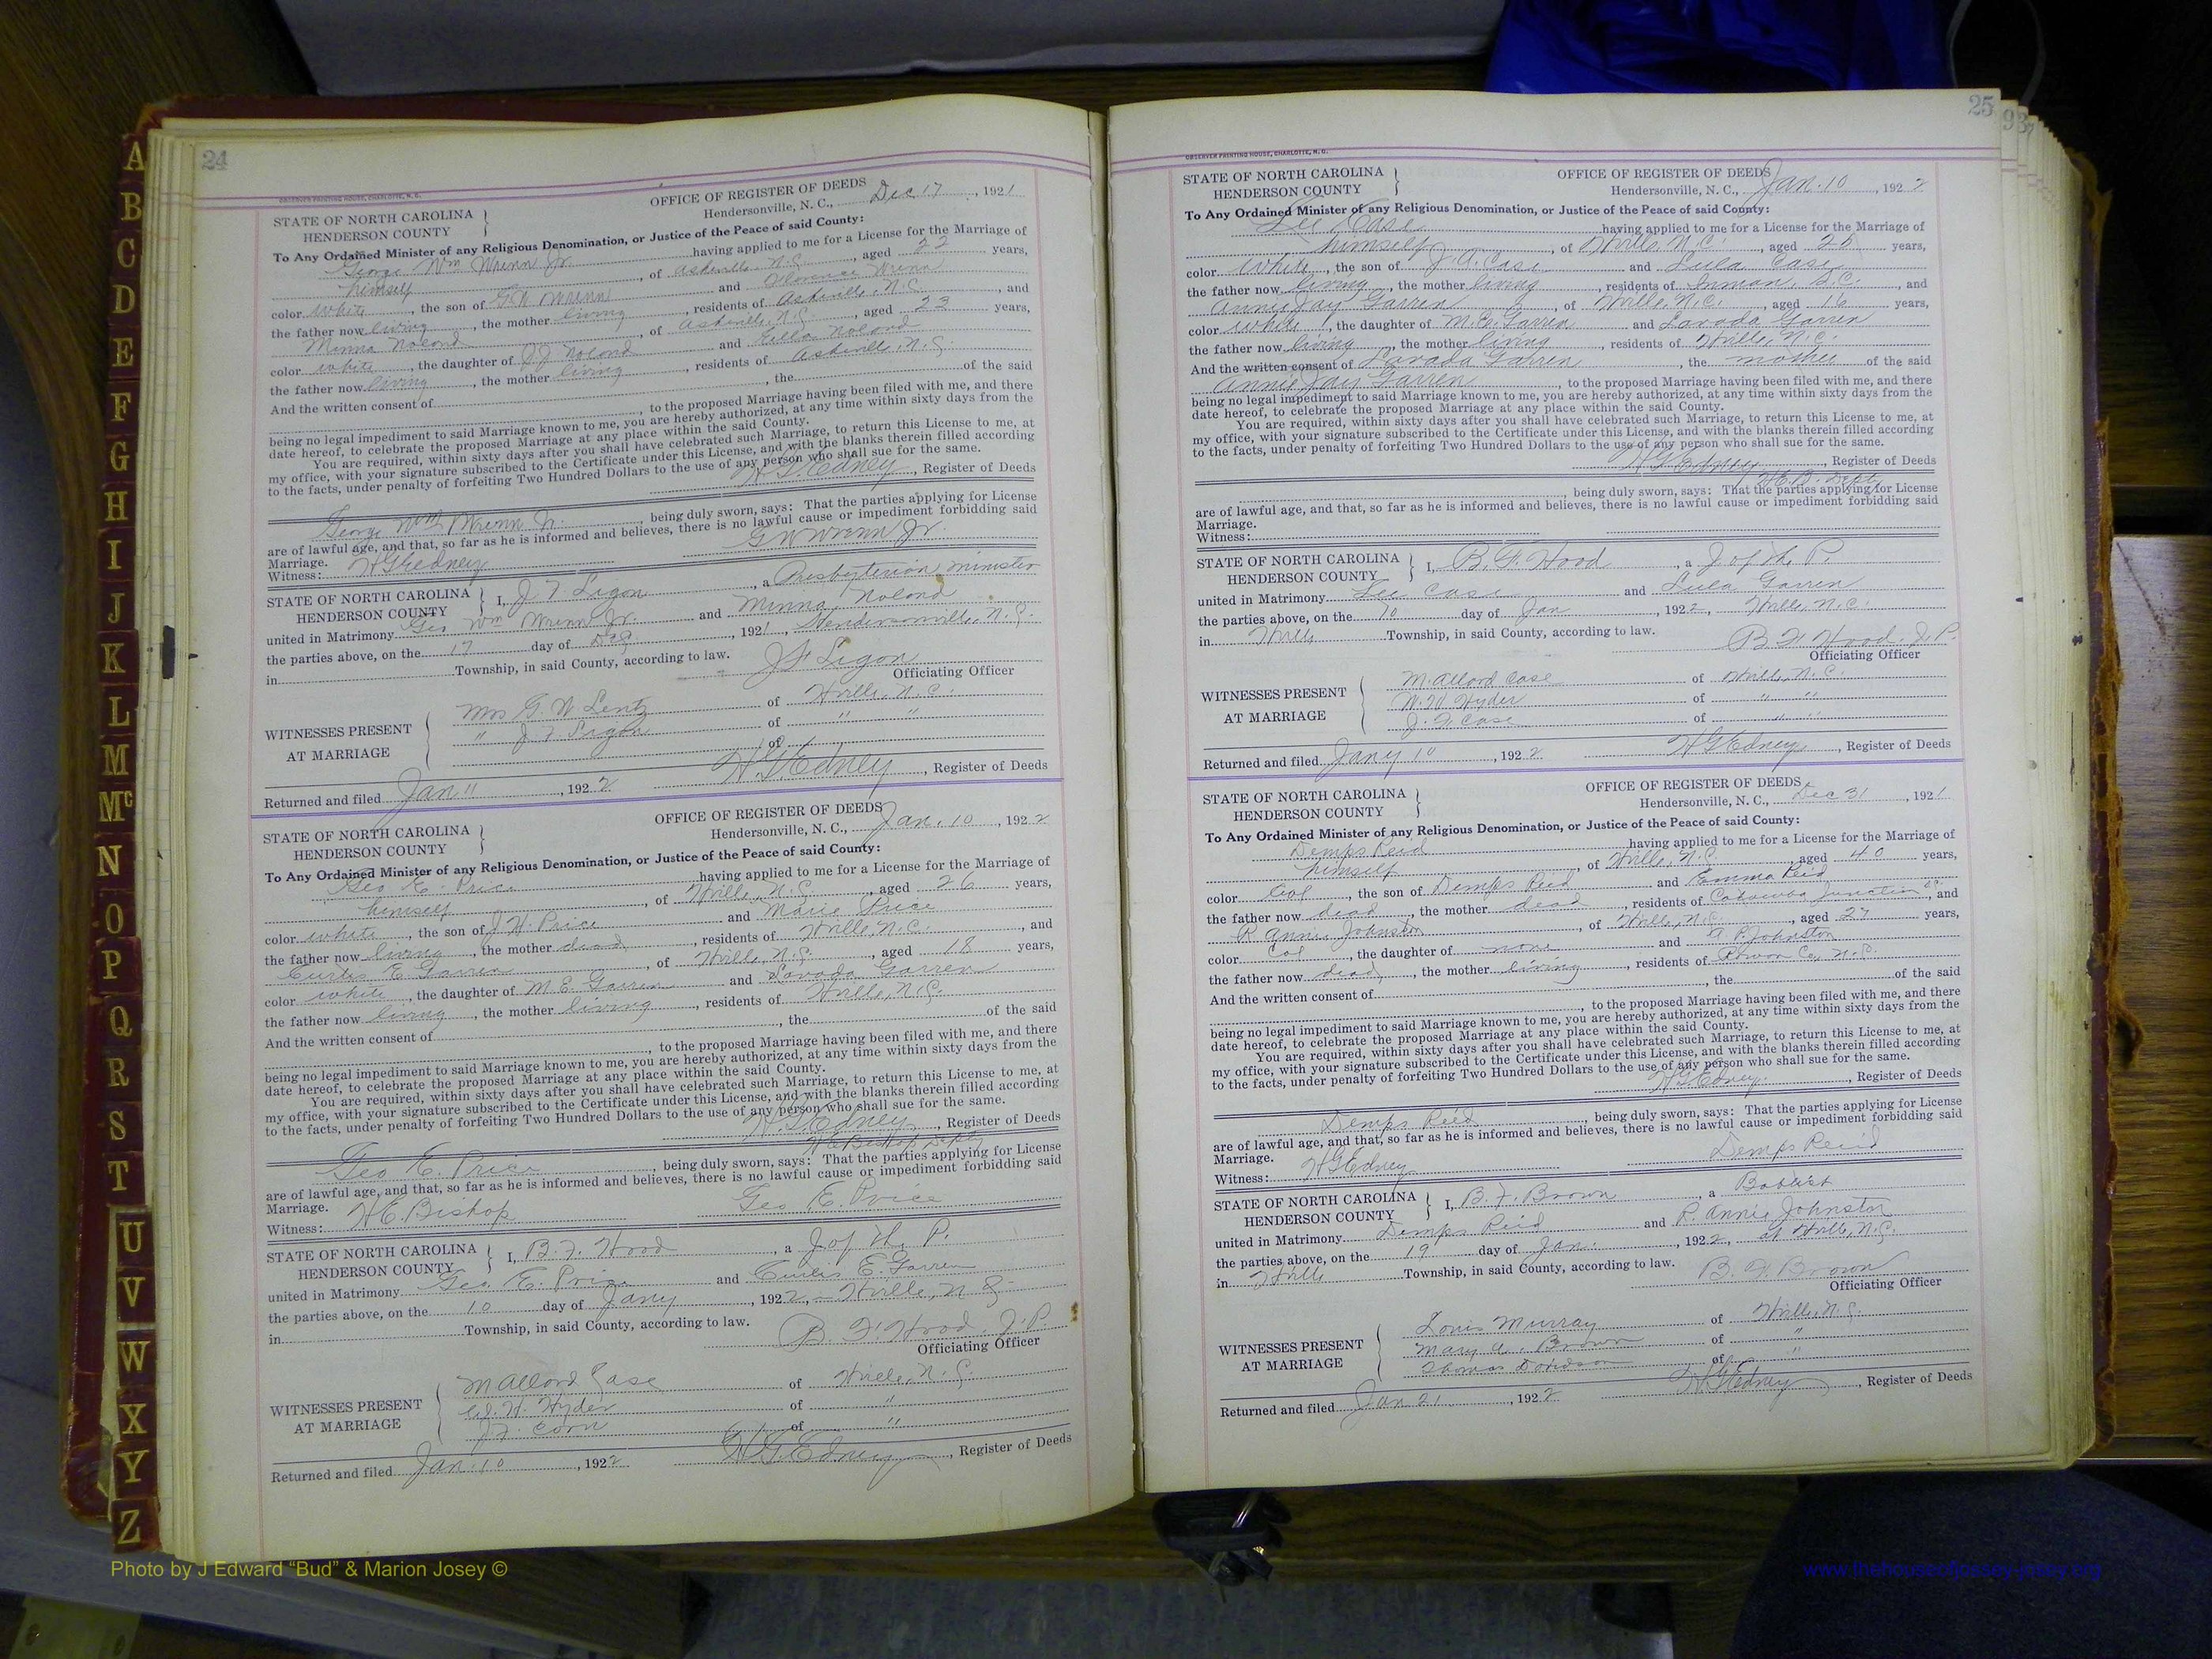 24
OBSERVER PRINTING HOUSE, CHARLOTTE, N. C.
STATE OF NORTH CAROLINA
HENDERSON COUNTY
OFFICE OF REGISTER OF DEEDS
Hendersonville, N. C., Dec 17, 1921
To Any Ordained Minister of any Religious Denomination, or Justice of the Peace of said County:
George Wm Wrenn Jr. having applied to me for a License for the Marriage of
himself, of Asheville N.C., aged 22 years,
color white, the son of G W Wrenn and Florence Wrenn
the father now living, the mother living, residents of Asheville, N.C., and
Minna Noland, of Asheville, N.C., aged 23 years,
color white, the daughter of J J Noland and Noland
the father now living, the mother living, residents of Asheville, N.C.
And the written consent of, the of the said
, to the proposed Marriage having been filed with me, and there
being no legal impediment to said Marriage known to me, you are hereby authorized, at any time within sixty days from the
date hereof, to celebrate the proposed Marriage at any place within the said County.
You are required, within sixty days after you shall have celebrated such Marriage, to return this License to me, at
my office, with your signature subscribed to the Certificate under this License, and with the blanks therein filled according
to the facts, under penalty of forfeiting Two Hundred Dollars to the use of any person who shall sue for the same.
H G Edney, Register of Deeds
George Wm Wrenn Jr., being duly sworn, says: That the parties applying for License
are of lawful age, and that, so far as he is informed and believes, there is no lawful cause or impediment forbidding said
Marriage. G W Wrenn Jr.
Witness: H G Edney
STATE OF NORTH CAROLINA
HENDERSON COUNTY
I, J F Ligon, a Presbyterian minister
united in Matrimony Geo Wm Wrenn Jr. and Minna Noland
the parties above, on the 17 day of Dec, 1921, Hendersonville, N.C.
in Township, in said County, according to law.
J F Ligon
Officiating Officer
WITNESSES PRESENT
AT MARRIAGE
Mrs G. W Lentz of Hville, N.C.
" J. F. Ligon of " "
of
Returned and filed Jan 11, 1922 H G Edney, Register of Deeds
STATE OF NORTH CAROLINA
HENDERSON COUNTY
OFFICE OF REGISTER OF DEEDS
Hendersonville, N. C., Jan. 10, 1922
To Any Ordained Minister of any Religious Denomination, or Justice of the Peace of said County:
Geo E. Price having applied to me for a License for the Marriage of
himself, of Hville, N.C., aged 26 years,
color white, the son of J. H. Price and Marie Price
the father now living, the mother dead, residents of Hville, N.C., and
Curtis E Garren, of Hville, N.C., aged 18 years,
color white, the daughter of M E. Garren and Lovada Garren
the father now living, the mother living, residents of Hville, N.C.
And the written consent of, the of the said
, to the proposed Marriage having been filed with me, and there
being no legal impediment to said Marriage known to me, you are hereby authorized, at any time within sixty days from the
date hereof, to celebrate the proposed Marriage at any place within the said County.
You are required, within sixty days after you shall have celebrated such Marriage, to return this License to me, at
my office, with your signature subscribed to the Certificate under this License, and with the blanks therein filled according
to the facts, under penalty of forfeiting Two Hundred Dollars to the use of any person who shall sue for the same.
H. G Edney, Register of Deeds
H E Bishop Depty
Geo E. Price, being duly sworn, says: That the parties applying for License
are of lawful age, and that, so far as he is informed and believes, there is no lawful cause or impediment forbidding said
Marriage. Geo E. Price
Witness: H E. Bishop
STATE OF NORTH CAROLINA
HENDERSON COUNTY
I, B. F. Hood, a J of th P.
united in Matrimony Geo E. Price and Curtis E. Garren
the parties above, on the 10 day of Jany, 1922, Hville, N C
in Township, in said County, according to law.
B. F. Hood J.P.
Officiating Officer
WITNESSES PRESENT
AT MARRIAGE
Mallord Case of Hville, N.C.
W. H. Hyder of "
J. F. Corn of "
Returned and filed Jan. 10, 1922 H G Edney, Register of Deeds
25
93
OBSERVER PRINTING HOUSE, CHARLOTTE, N. C.
STATE OF NORTH CAROLINA
HENDERSON COUNTY
OFFICE OF REGISTER OF DEEDS
Hendersonville, N. C., Jan. 10, 1922
To Any Ordained Minister of any Religious Denomination, or Justice of the Peace of said County:
Lee Case having applied to me for a License for the Marriage of
himself, of Hville, N.C., aged years,
color white, the son of J. A. Case and Lula Case
the father now living, the mother living, residents of Inman, S.C., and
Annie Jay Garren, of Hville, N.C., aged 16 years,
color white, the daughter of M. E. Garren and Lovada Garren
the father now living, the mother living, residents of Hville, N.C.
And the written consent of Lovada Garren, the mother of the said
Annie Jay Garren, to the proposed Marriage having been filed with me, and there
being no legal impediment to said Marriage known to me, you are hereby authorized, at any time within sixty days from the
date hereof, to celebrate the proposed Marriage at any place within the said County.
You are required, within sixty days after you shall have celebrated such Marriage, to return this License to me, at
my office, with your signature subscribed to the Certificate under this License, and with the blanks therein filled according
to the facts, under penalty of forfeiting Two Hundred Dollars to the use of any person who shall sue for the same.
H G Edney, Register of Deeds
H.E.B. Depty
, being duly sworn, says: That the parties applying for License
are of lawful age, and that, so far as he is informed and believes, there is no lawful cause or impediment forbidding said
Marriage.
Witness:
STATE OF NORTH CAROLINA
HENDERSON COUNTY
I, B. F. Hood, a J of th P.
united in Matrimony Lee Case and Lula Garren
the parties above, on the 10 day of Jan, 1922, Hville, N.C.
in Hville Township, in said County, according to law.
B. F. Hood. J. P.
Officiating Officer
WITNESSES PRESENT
AT MARRIAGE
Mallord Case of Hville, N.C.
W. H Hyder of " "
J. F. Case of " "
Returned and filed Jany 10, 1922 H G Edney, Register of Deeds
STATE OF NORTH CAROLINA
HENDERSON COUNTY
OFFICE OF REGISTER OF DEEDS
Hendersonville, N. C., Dec 31, 1921
To Any Ordained Minister of any Religious Denomination, or Justice of the Peace of said County:
Demps Reid having applied to me for a License for the Marriage of
himself, of Hville, N.C., aged 40 years,
color Col, the son of Demps Reid and Emma Reid
the father now dead, the mother dead, residents of Junction, and
R Annie Johnston, of Hville, N.C., aged 27 years,
color Col, the daughter of none and Johnston
the father now dead, the mother living, residents of Rowan Co, N.C.
And the written consent of, the of the said
, to the proposed Marriage having been filed with me, and there
being no legal impediment to said Marriage known to me, you are hereby authorized, at any time within sixty days from the
date hereof, to celebrate the proposed Marriage at any place within the said County.
You are required, within sixty days after you shall have celebrated such Marriage, to return this License to me, at
my office, with your signature subscribed to the Certificate under this License, and with the blanks therein filled according
to the facts, under penalty of forfeiting Two Hundred Dollars to the use of any person who shall sue for the same.
H G Edney, Register of Deeds
Demps Reid, being duly sworn, says: That the parties applying for License
are of lawful age, and that, so far as he is informed and believes, there is no lawful cause or impediment forbidding said
Marriage. Demps Reid
Witness: H G Edney
STATE OF NORTH CAROLINA
HENDERSON COUNTY
I, B. F. Brown, a Babtist
united in Matrimony Demps Reid and R. Annie Johnston
the parties above, on the 19 day of Jan., 1922, at Hville, N.C.
in Hville Township, in said County, according to law.
B. F. Brown
Officiating Officer
WITNESSES PRESENT
AT MARRIAGE
Louis Murray of Hville, N.C.
Mary A. Brown of "
Thomas Davidson of "
Returned and filed Jan 21, 1922 H G Edney, Register of Deeds
A
B
C
D
E
F
G
H
I
J
K
L
M
Mc
N
O
P
Q
R
S
T
U
V
W
X
Y
Z
Photo by J Edward “Bud” & Marion Josey ©
www.thehouseofjossey-josey.org